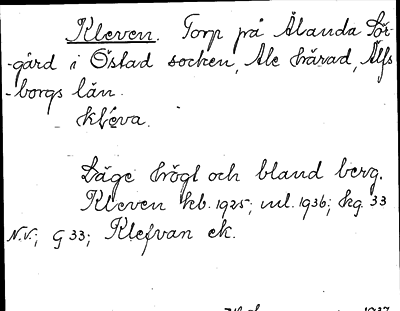 Kleven. Torp på Ålanda Sör-
-gård i Östad socken, Ale härad, Älfs
-borgs län.
klèva.
Läge högt och bland berg.
Kleven kb. 1925; ml. 1936; kg 33
N.V.; G 33; Klefvan ek.
1937